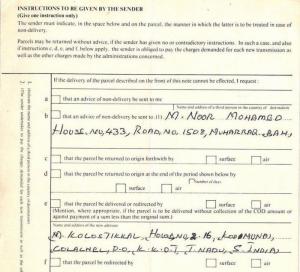 INSTRUCTIONS TO BE GIVEN BY THE SENDER
(Give one instruction only)
The sender must indicate, in the space below and on the parcel, the manner in which the latter is to be treated in case of
non-delivery.
Parcels may be returned without advice, if the sender has given no or contradictory instructions. In such a case, and also
if instructions c, d, e, and f, below apply, the sender is obliged to pay the charges demanded for each new transmission as
well as the other charges made by the administrations concerned.
If the delivery of the parcel described on the front of this note cannot be effected, I request :
a that an advice of non-delivery be sent to me
Name and address of a third person in the country of destination
b that an advice of non-delivery be sent to (1) M. NOOR MOHAMED
HOUSE. NO, 433, ROAD. NO. 1508, MUHARRAQ.
c that the parcel be returned to origin forthwith by surface air
d that the parcel be returned to origin at the end of the period shown below by
Number of days
surface air
e that the parcel be delivered or redirected by surface air
(Mention, where appropriate, if the parcel is to be delivered without collection of the COD amount or
against payment of a sum less than the original sum.)
Name and address of the new addressee
COLACHEL, P.O, K.K.DT, T. NADU, S. INDIA
f that the parcel be redirected by surface air